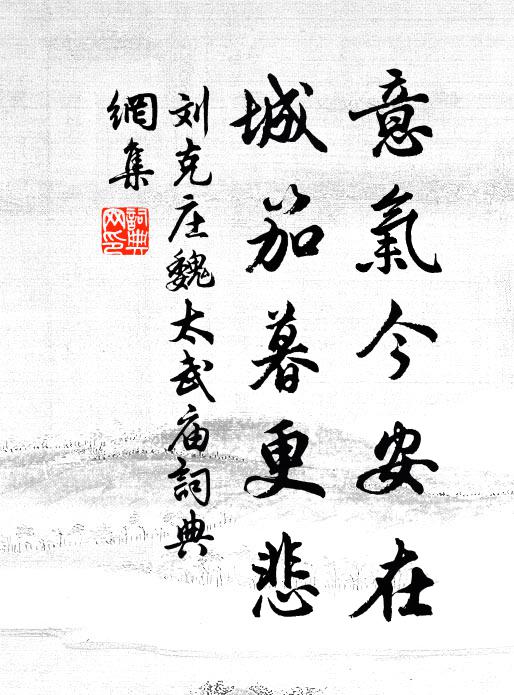 意氣今安在
城笳暮更悲
刘克庄魏太武庙詞典
網集
詞典網印